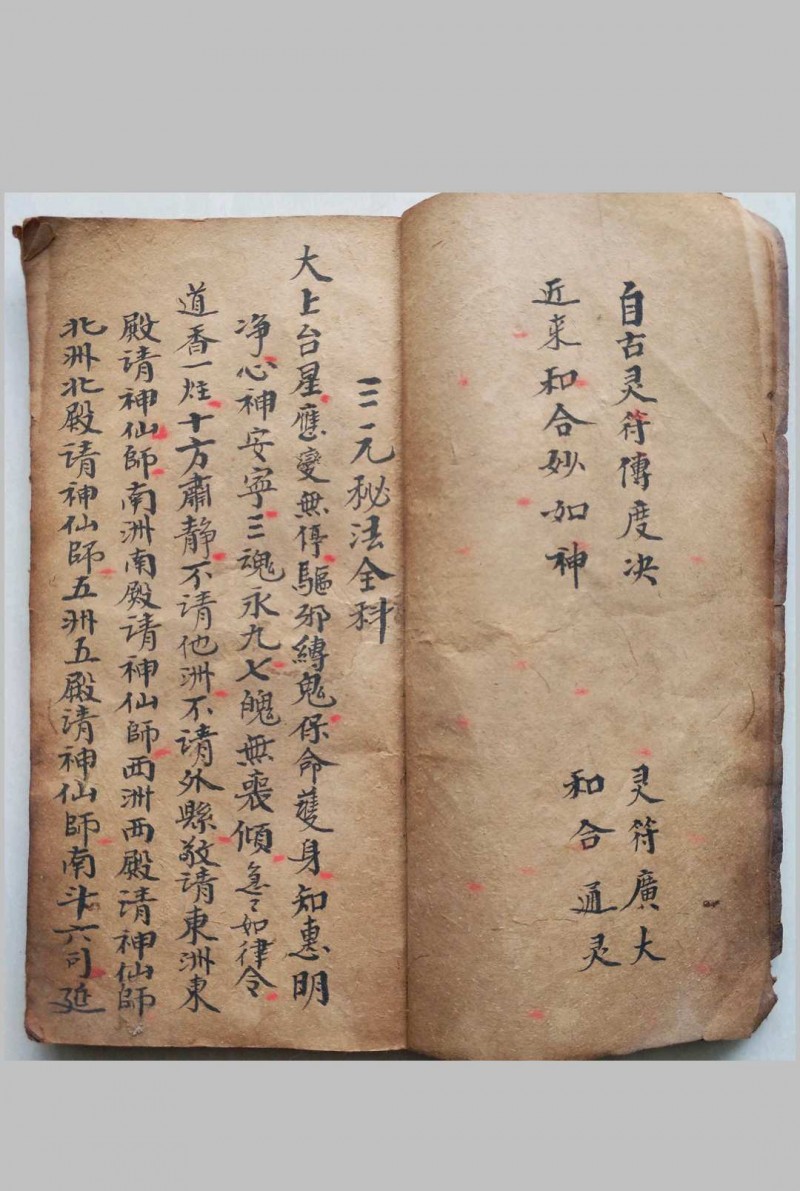 自古灵符傳度决
灵符廣大
近来和合妙如神
和合通灵
三元秘法全科
大上台星應变無停驅邪縛鬼保命護身知惠明
净心神安寧三魂永九七魄無喪傾急〻如律令
道香一炷十方肅静不请他洲不请外縣敬请東洲東
殿请神仙師南洲南殿请神仙師西洲西殿请神仙師
北洲北殿请神仙師五洲五殿请神仙師南斗六司延